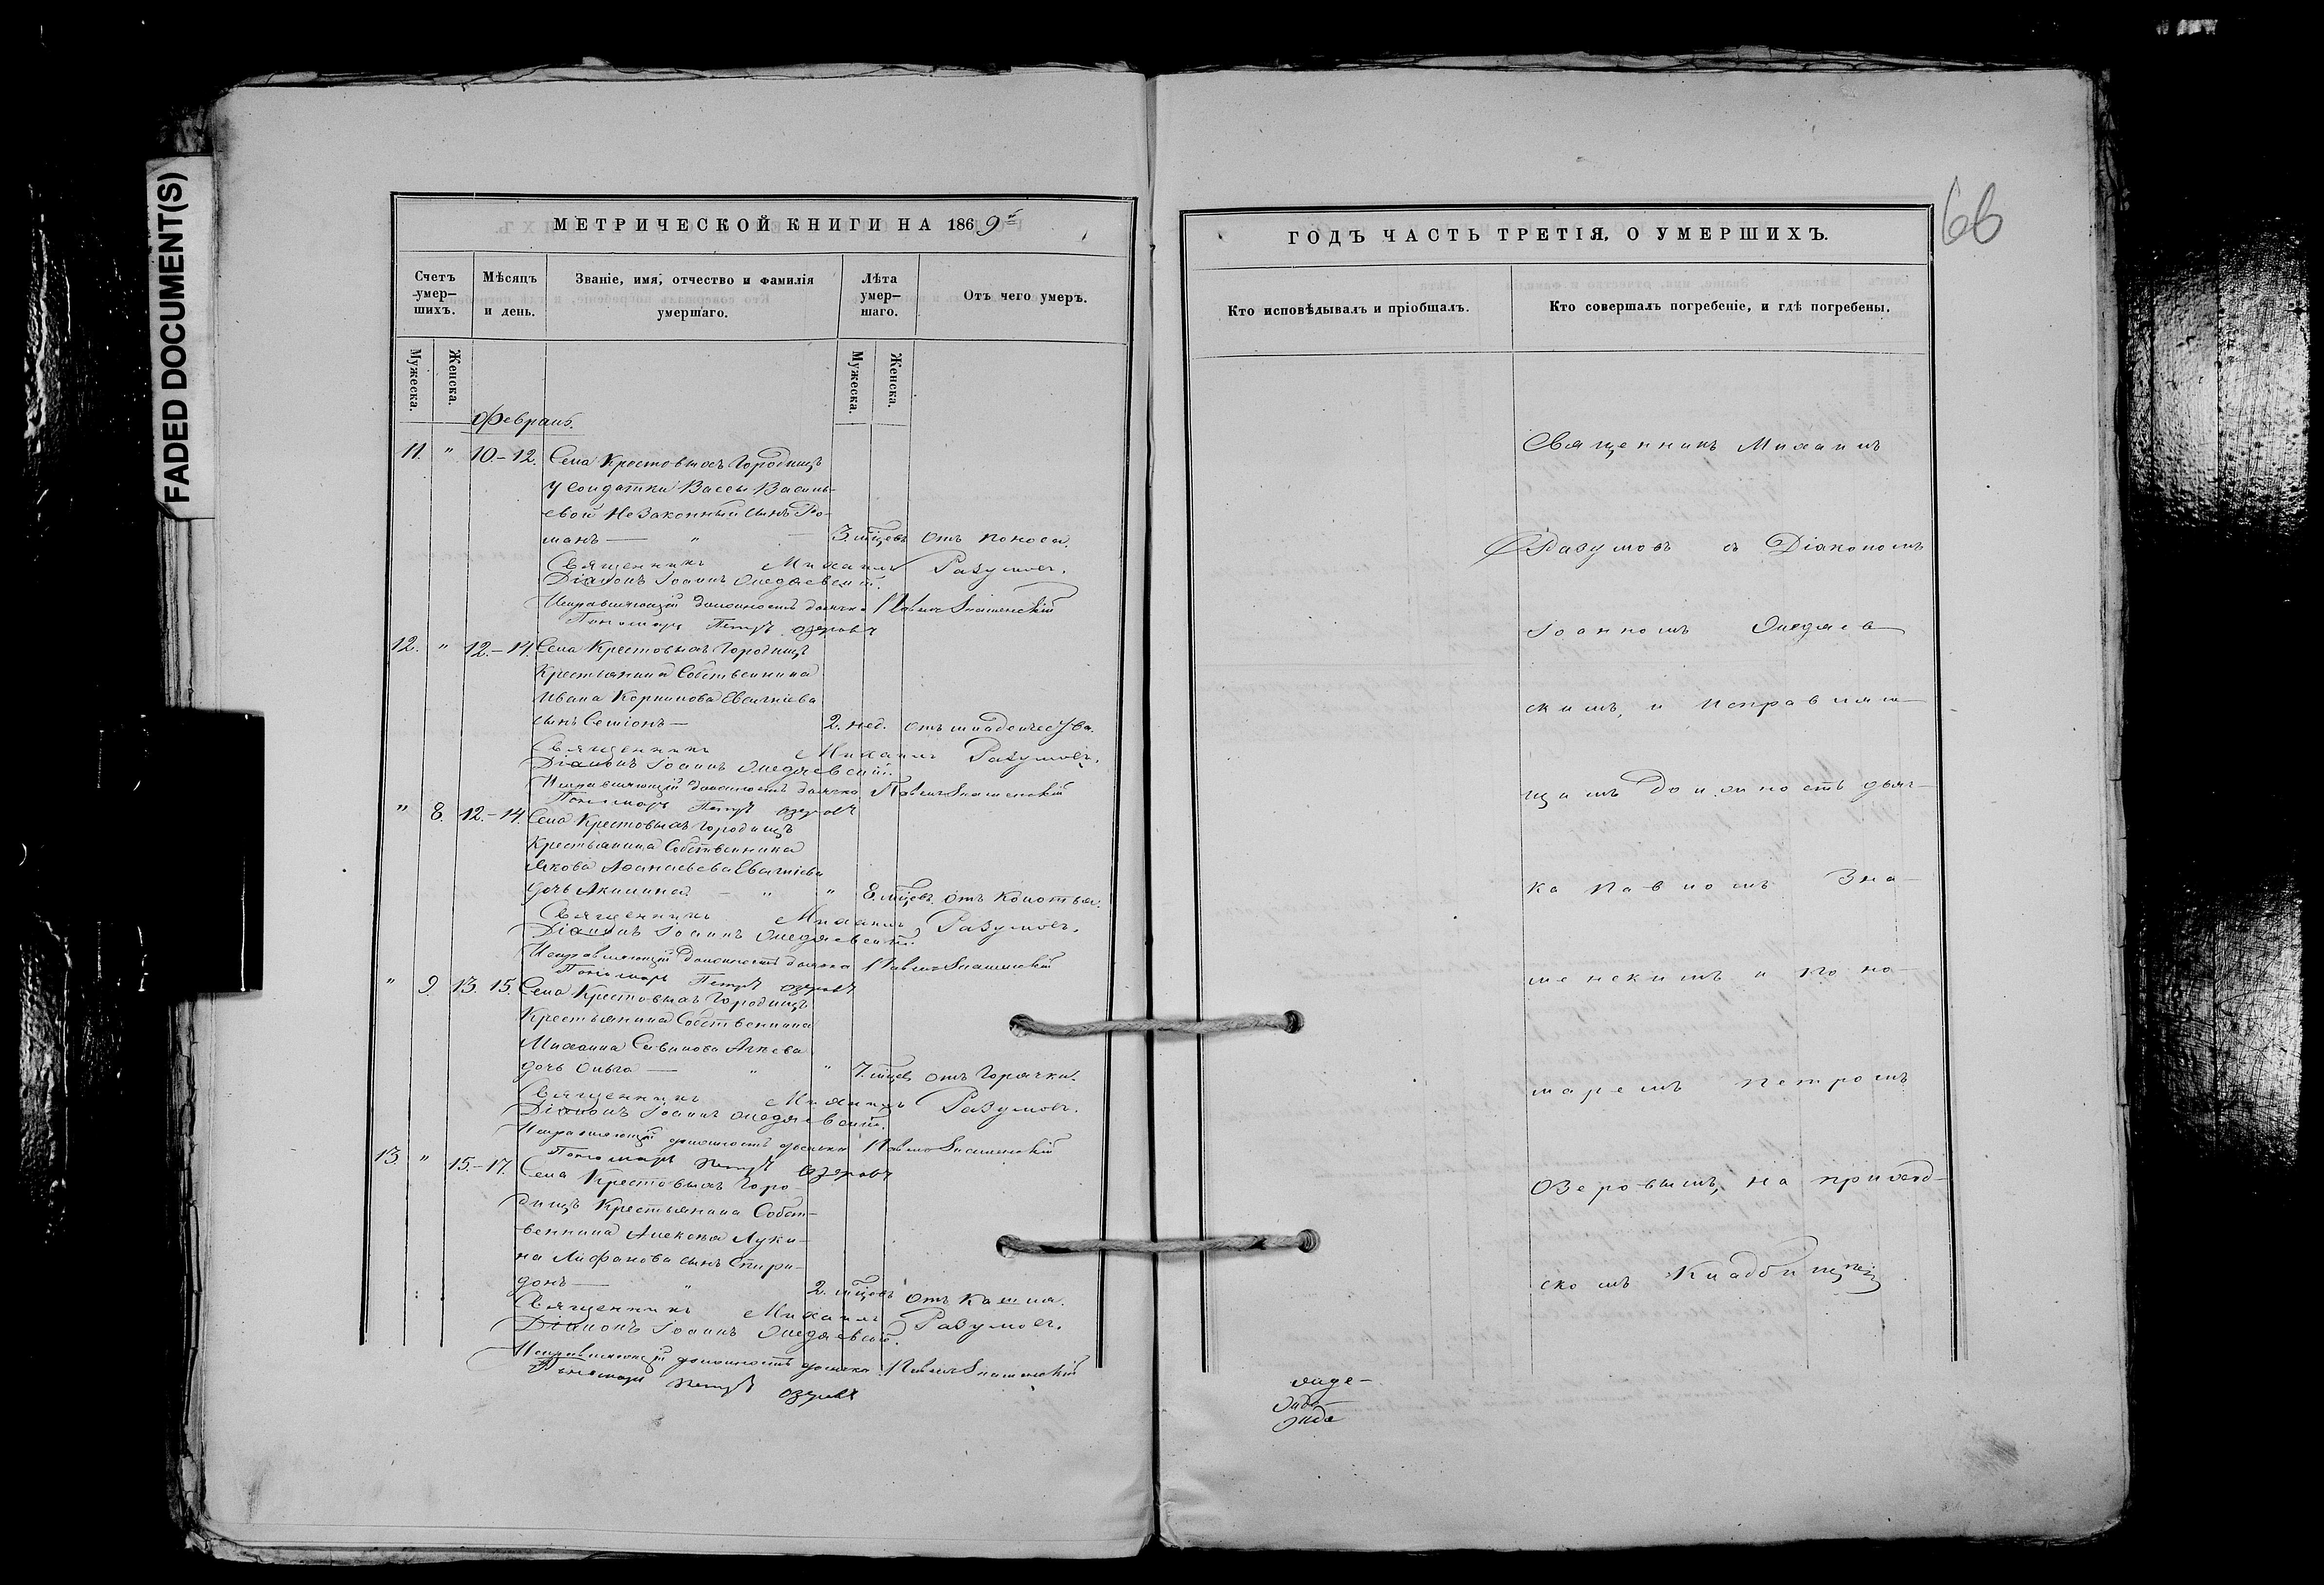 FADED DOCUMENT(S)
МЕТРИЧЕСКОЙ КНИГИ НА 1869й
Счетъ умер-шихъ.
Мѣсяцъ и день.
Званіе, имя, отчество и фамилія умершаго.
Лѣта умер-шаго.
Отъ чего умеръ.
Мужеска.
Женска.
Мужеска.
Женска.
Февраль.
11. " 10-12. Села Крестовыхъ Городищъ
у солдатки Вассы Василь-
евой незаконный сынъ Ро-
манъ — " — 3. мцевъ отъ поноса.
Священникъ Михаилъ Разумовъ.
Діаконъ Іоаннъ
Исправляющій должность дьячка Павелъ Знаменскій
Пономарь Петръ Озеровъ
12. " 12.-14. Села Крестовыхъ Городищъ
Крестьянина Собственника
Ивана Корнилова
сынъ Семіонъ — 2. нед. отъ младенчества.
Священникъ Михаилъ Разумовъ.
Діаконъ Іоаннъ
Исправляющій должность дьячка Павелъ Знаменскій
Пономарь Петръ Озеровъ
" 8. 12.-14. Села Крестовыхъ Городищъ
Крестьянина Собственника
Якова Аѳанасьева
дочь Акилина. — " " 8. мцевъ отъ колотья.
Священникъ Михаилъ Разумовъ.
Діаконъ Іоаннъ
Исправляющій должность дьячка Павелъ Знаменскій
Пономарь Петръ Озеровъ
" 9. 13. 15. Села Крестовыхъ Городищъ
Крестьянина Собственника
Михаила Савинова
дочь Ольга — " " 7. мцев. отъ горячки.
Священникъ Михаилъ Разумовъ.
Діаконъ Іоаннъ
Исправляющій должность дьячка Павелъ Знаменскій
Пономарь Петръ Озеровъ
13. " 15.-17. Села Крестовыхъ Горо-
дищъ Крестьянина Собст-
венника Алексѣя Луки-
на Лифанова сынъ Спири-
донъ — " 2. мцевъ отъ кашля.
Священникъ Михаилъ Разумовъ.
Діаконъ Іоаннъ
Исправляющій должность дьячка Павелъ Знаменскій
Пономарь Петръ Озеровъ
66
ГОДЪ ЧАСТЬ ТРЕТІЯ, О УМЕРШИХЪ.
Кто исповѣдывалъ и пріобщалъ.
Кто совершалъ погребеніе, и гдѣ погребены.
Священникъ Михаилъ
Разумовъ съ Діакономъ
Іоанномъ
скимъ, и исправляю-
щимъ должность дьяч-
ка Павломъ Зна-
менскимъ и поно-
маремъ Петромъ
Озеровымъ, на приход-
скомъ Кладбищѣ